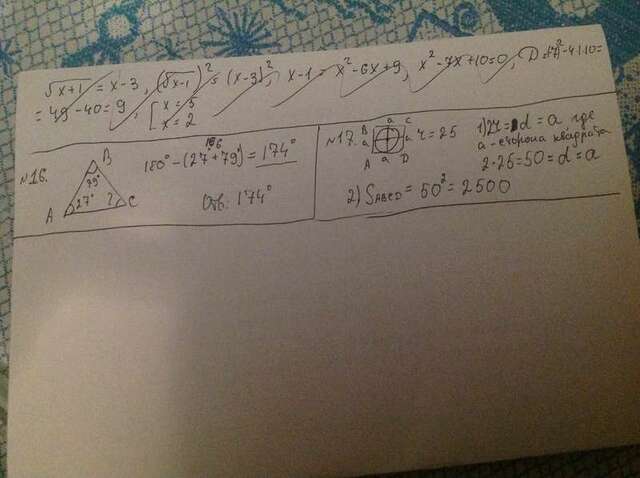 √x+1 = x-3, (√x-1)² = (x-3)², x-1 = x²-6x+9, x²-7x+10=0, D=(-7)²-4·1·10=
= 49-40=9, [x=5
x=2
N16.
B
79°
A 27° ? C
106
180°-(27°+79°) = 174°
Отв: 174°
N17.
B a C
a a
A a D
r=25
1) 2r = d = a где
a - сторона квадрата
2·25=50=d=a
2) SABCD = 50² = 2500